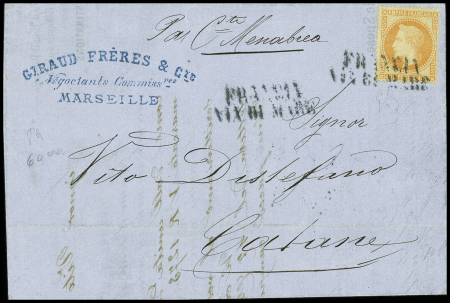 Par C.ta Menabrea
EMPIRE FRANÇAIS
GIRAUD FRÈRES & Cie
Négociants Commissres
MARSEILLE
FRANCIA
VIA DI MARE
FRANCIA
VIA DI MARE
Signor
Vito Distefano
Catane